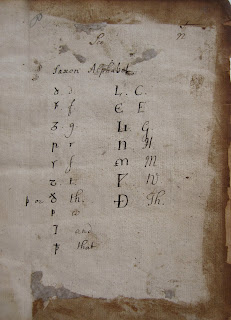 Saxon Alphabet
ꝺ d Ⅽ. C.
ꝼ f Є E
ᵹ g Ᵹ G
ꞃ r H
ꞅ ſ M M
ꞇ t. Ƿ W
þ or ð th. Ð Th.
ƿ w
⁊ and
ꝥ that